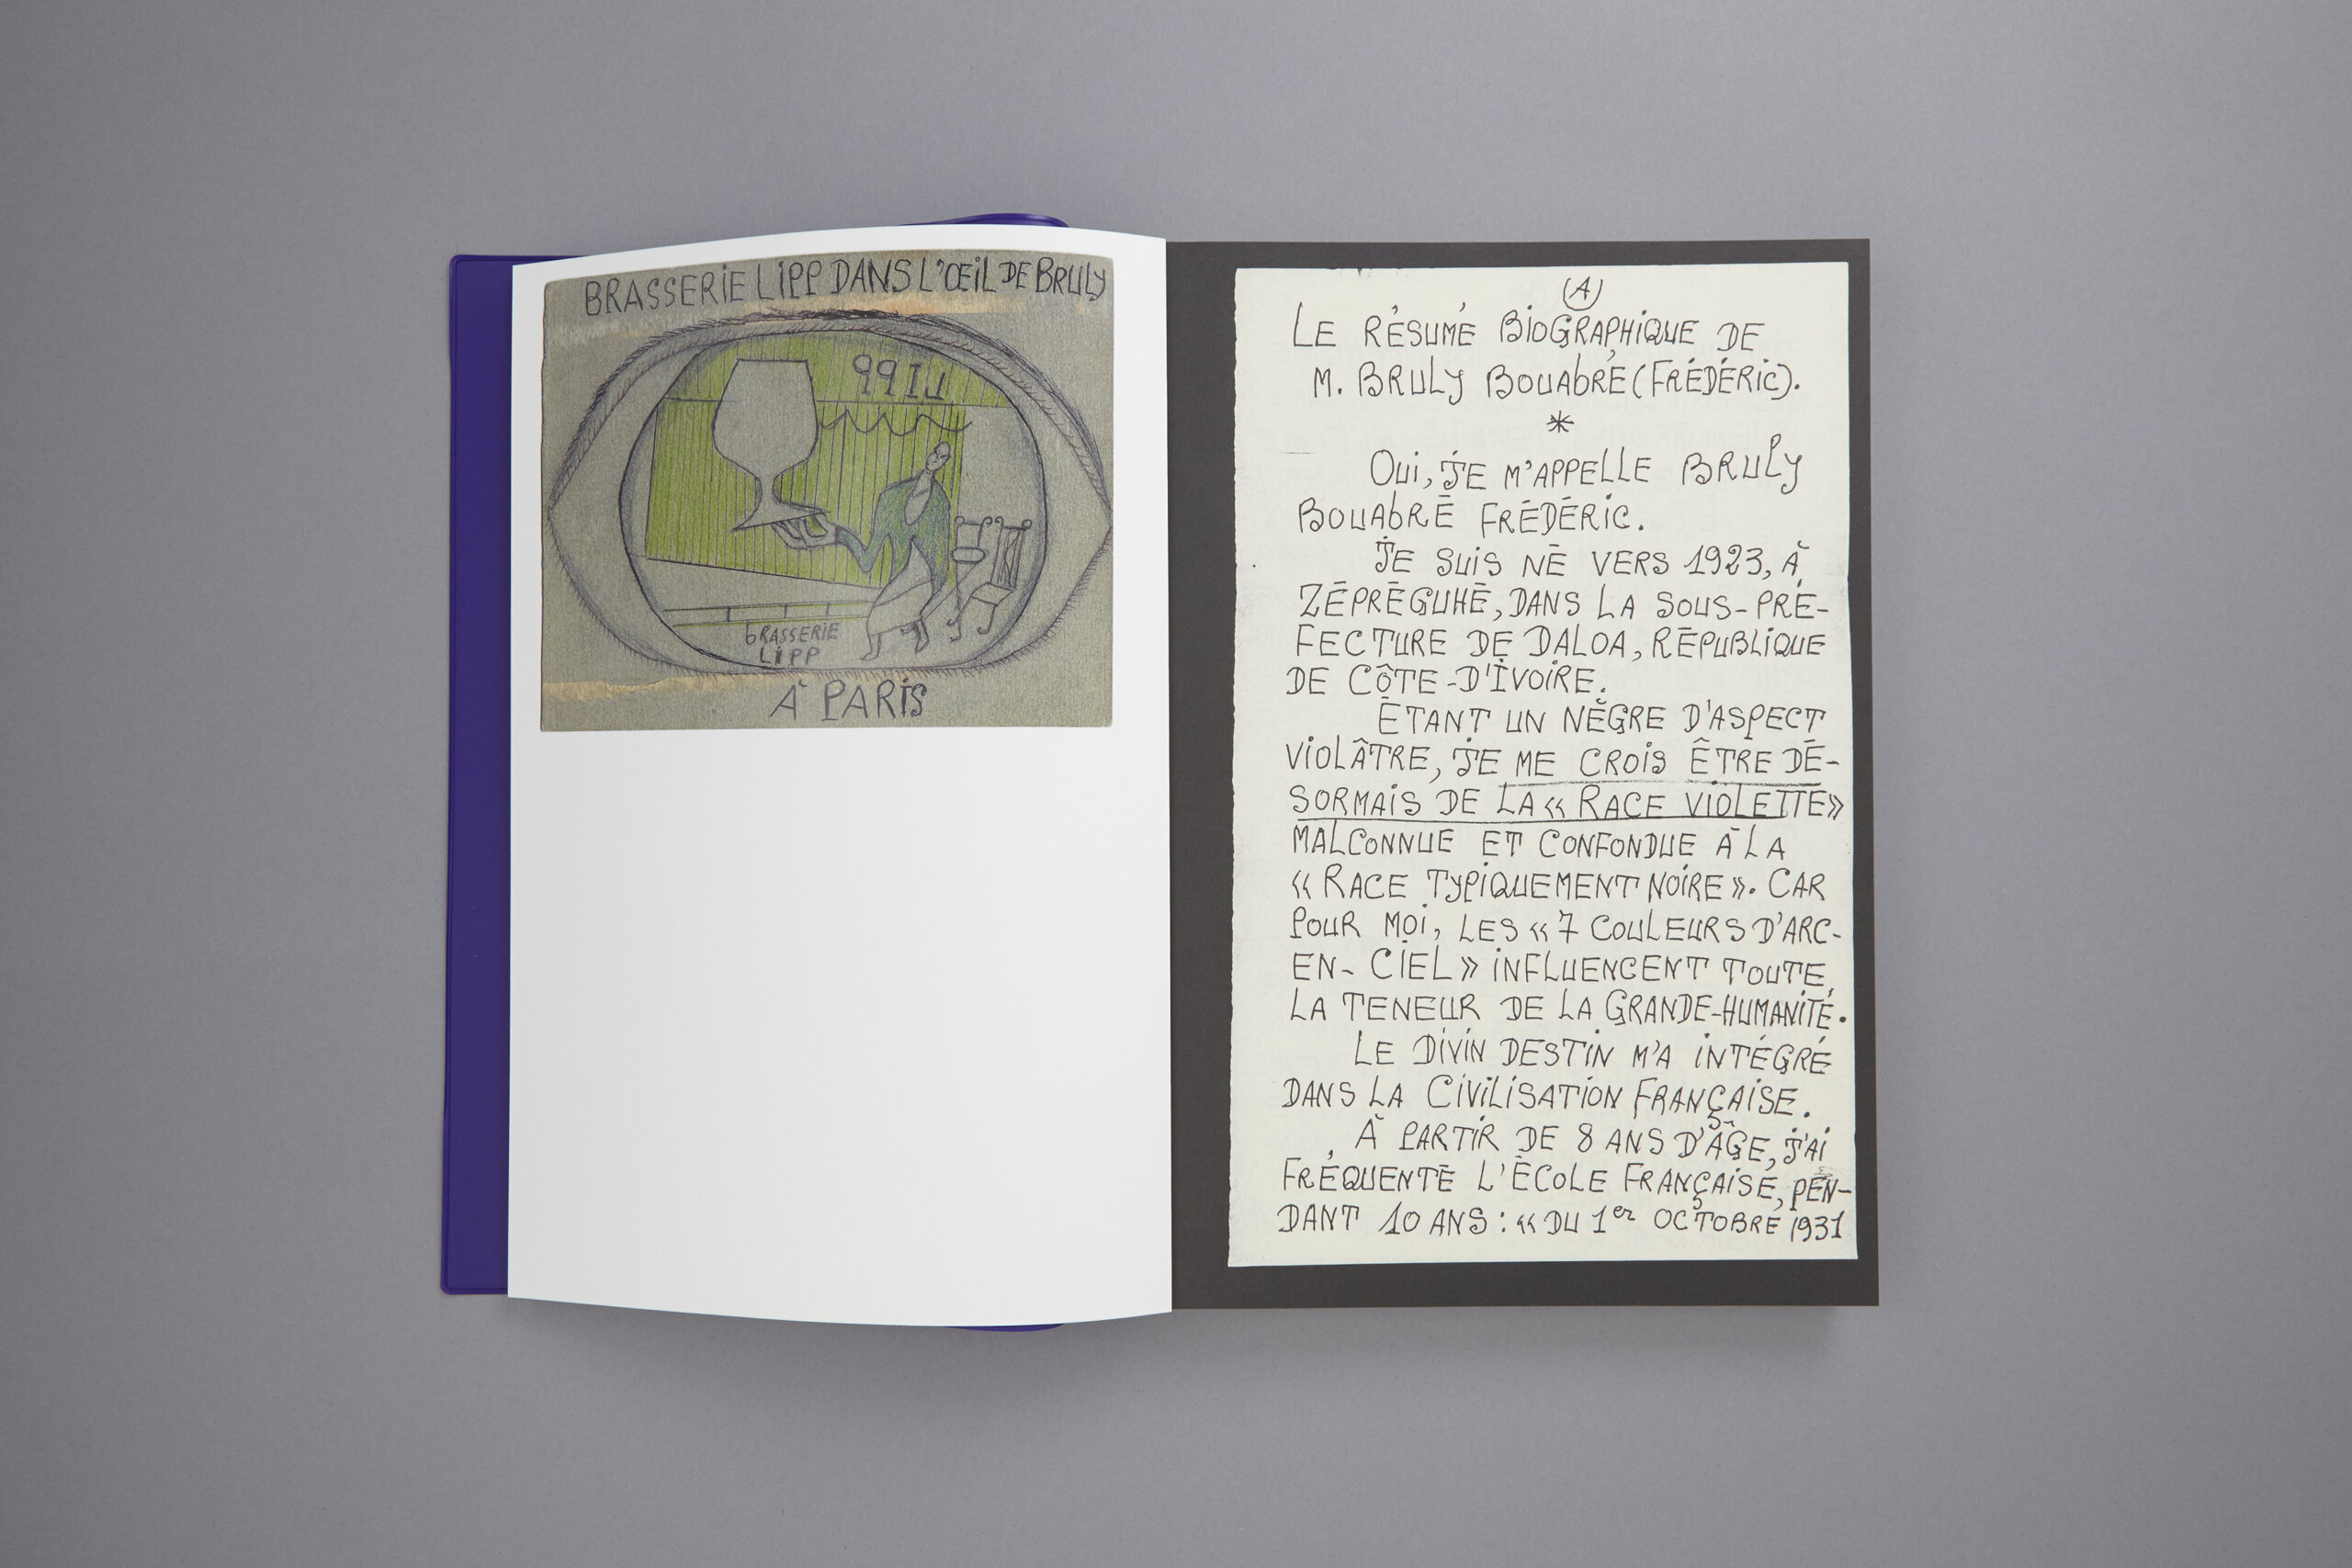 BRASSERIE LIPP DANS L'ŒIL DE BRULY
LIPP
BRASSERIE
LIPP
À PARIS
A
LE RÉSUMÉ BIOGRAPHIQUE DE
M. BRULY BOUABRÉ (FRÉDÉRIC).
*
OUI, JE M'APPELLE BRULY
BOUABRÉ FRÉDÉRIC.
JE SUIS NÉ VERS 1923, À
ZÉPRÉGUHÉ, DANS LA SOUS-PRÉ-
FECTURE DE DALOA, RÉPUBLIQUE
DE CÔTE-D'IVOIRE.
ÉTANT UN NÈGRE D'ASPECT
VIOLÂTRE, JE ME CROIS ÊTRE DÉ-
SORMAIS DE LA « RACE VIOLETTE »
MALCONNUE ET CONFONDUE À LA
« RACE TYPIQUEMENT NOIRE ». CAR
POUR MOI, LES « 7 COULEURS D'ARC-
EN-CIEL » INFLUENCENT TOUTE
LA TENEUR DE LA GRANDE-HUMANITÉ.
LE DIVIN DESTIN M'A INTÉGRÉ
DANS LA CIVILISATION FRANÇAISE.
À PARTIR DE 8 ANS D'ÂGE, J'AI
FRÉQUENTÉ L'ÉCOLE FRANÇAISE, PEN-
DANT 10 ANS : « DU 1er OCTOBRE 1931